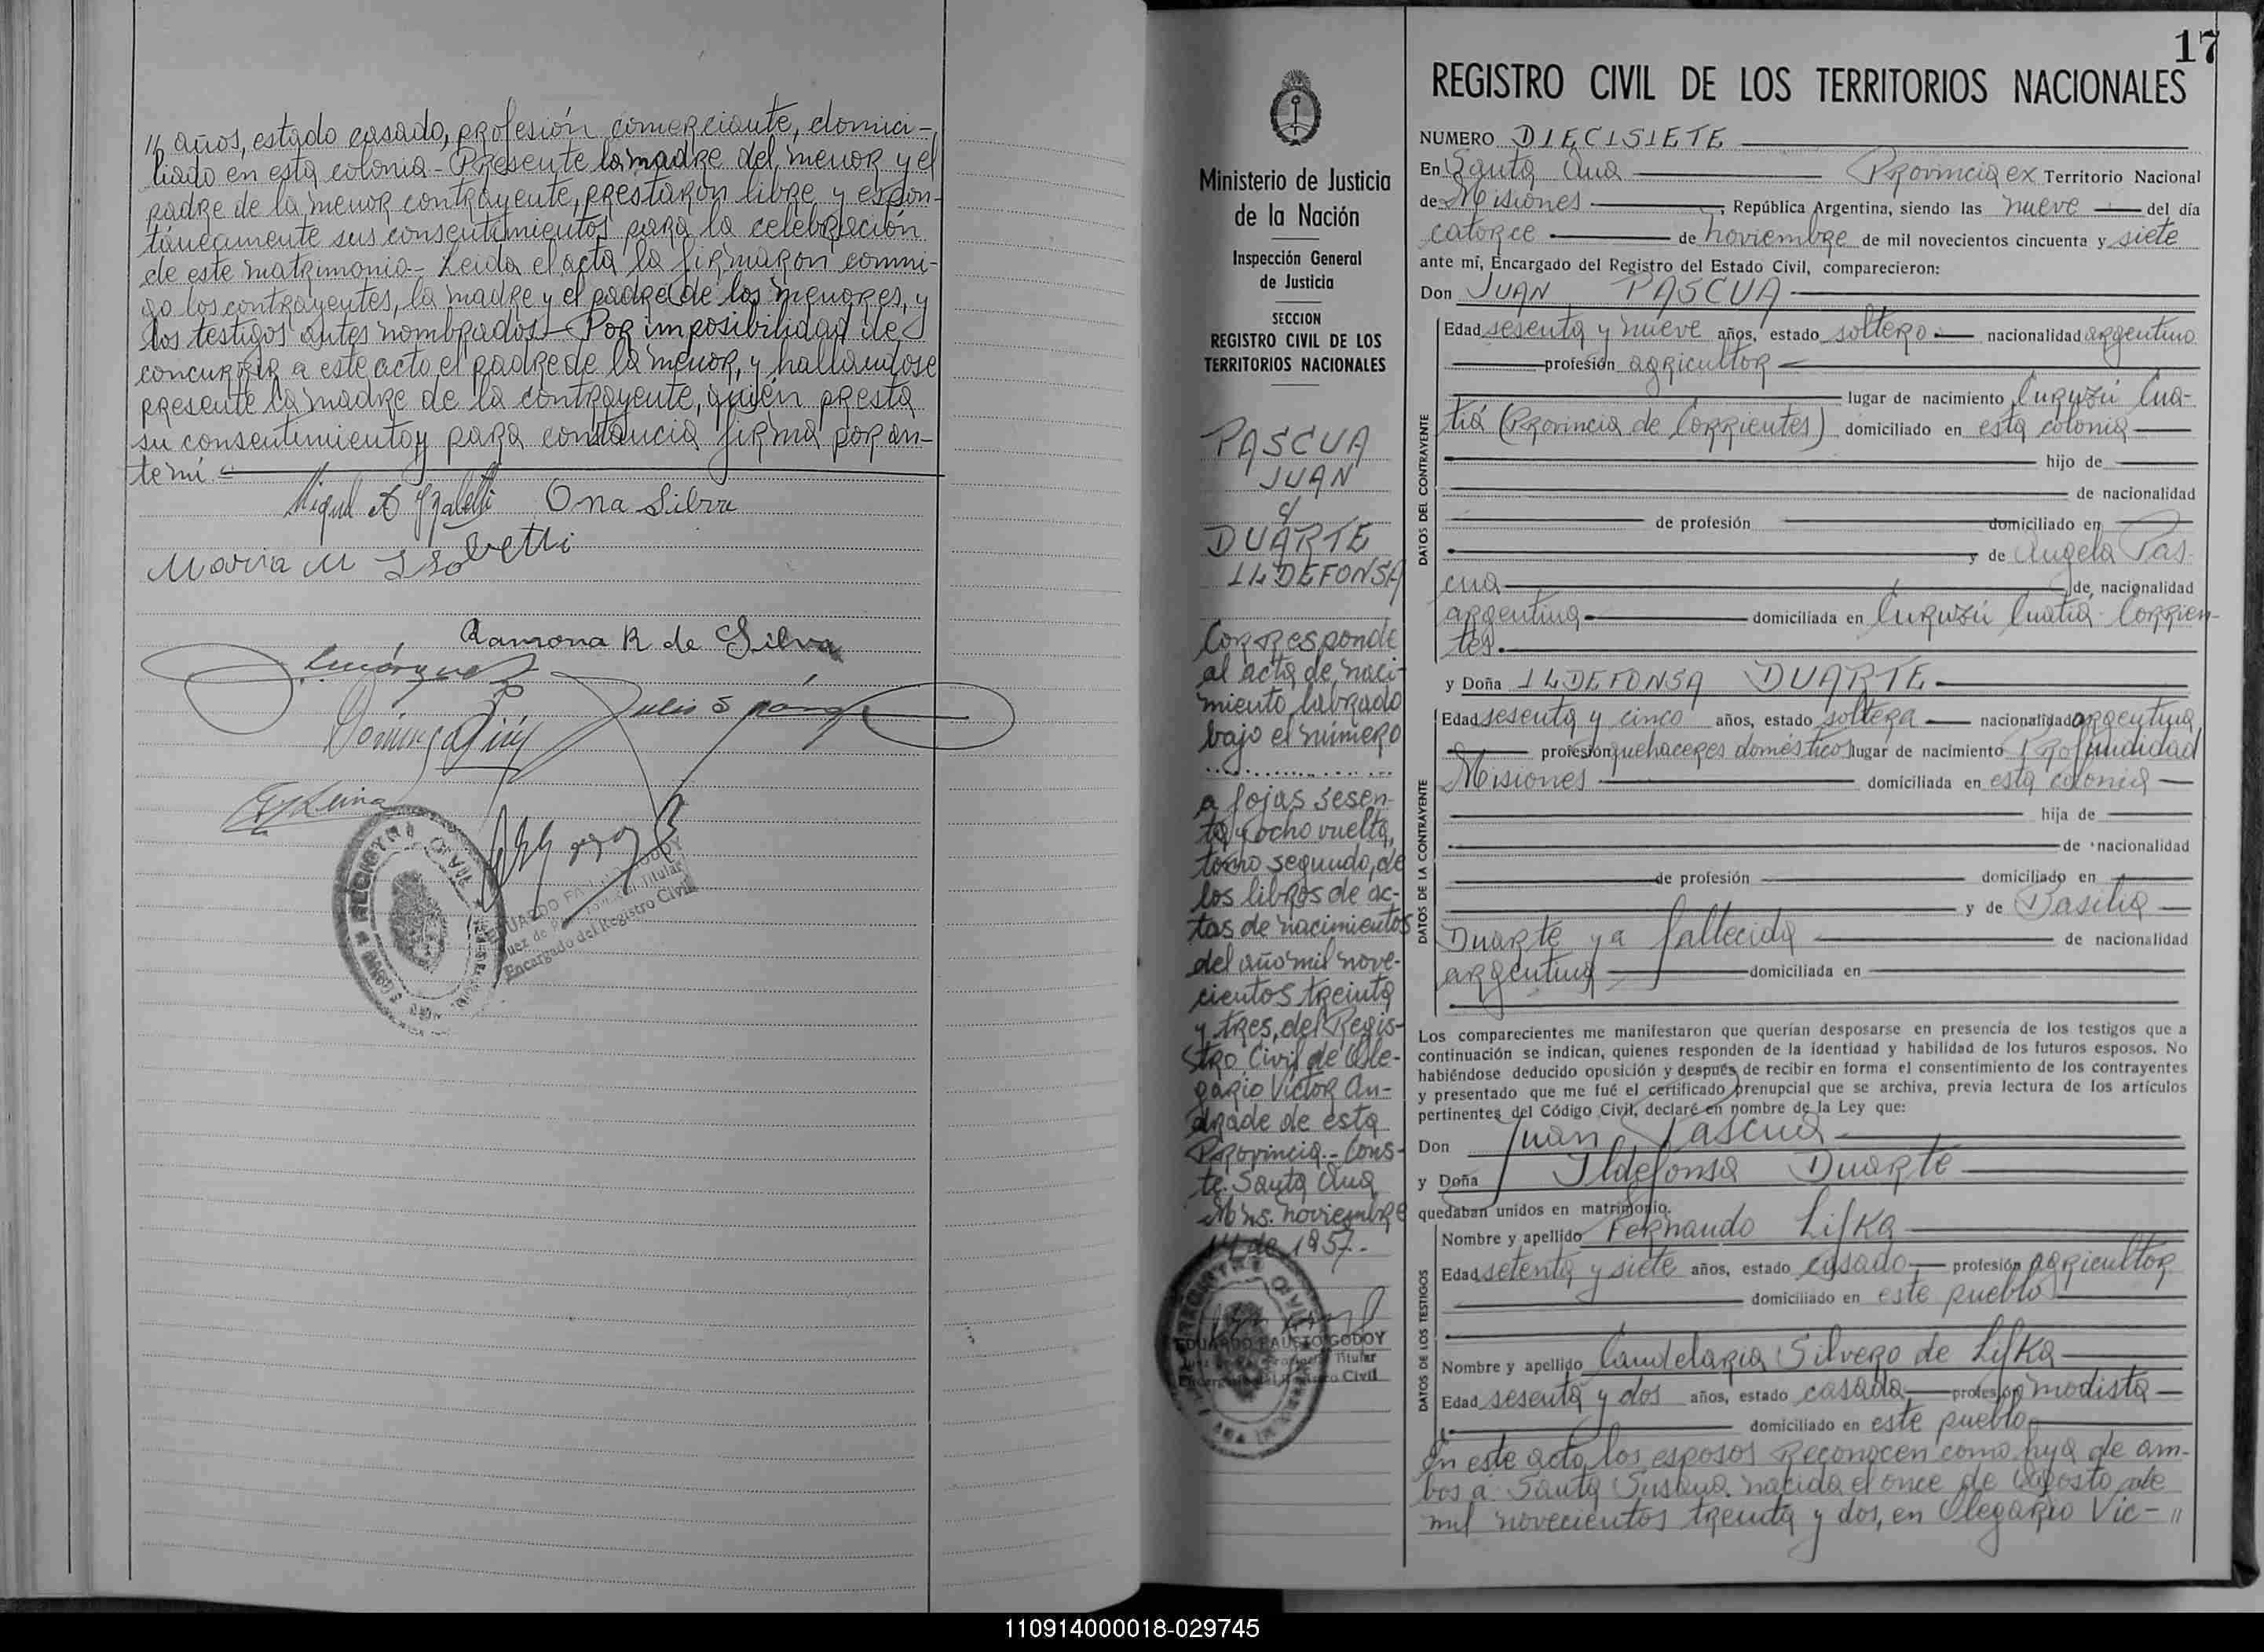 " años, estado casado, profesión comerciante, domici-
liado en esta colonia - Presente la madre del menor y el
padre de la menor contrayente, prestaron libre y espon-
táneamente sus consentimientos para la celebración
de este matrimonio - Leida el acta la firmaron conmi-
go los contrayentes, la madre y el padre de los menores, y
los testigos antes nombrados - Por imposibilidad de
concurrir a este acto el padre de la menor, y hallandose
presente la madre de la contrayente, quién presta
su consentimiento y para constancia firma por an-
te mi
Ona Silva
Maria M
Ramona R de Silva
Julio
REGISTRO CIVIL
EDUARDO FAUSTO GODOY
Juez de Titular
Encargado del Registro Civil
17
Ministerio de Justicia
de la Nación
Inspección General
de Justicia
SECCION
REGISTRO CIVIL DE LOS
TERRITORIOS NACIONALES
PASCUA
JUAN
c/
DUARTE
ILDEFONSA
Corresponde
al acta de naci-
miento labrado
bajo el número
a fojas sesen-
ta y ocho vuelta,
tomo segundo, de
los libros de ac-
tas de nacimientos
del año mil nove-
cientos treinta
y tres, del Regis-
tro Civil de Ole-
gario Victor An-
drade de esta
Provincia.- Cons-
te. Santa Ana
Mns. noviembre
14 de 1957.-
EDUARDO FAUSTO GODOY
Juez de Titular
Encargado del Registro Civil
REGISTRO CIVIL DE LOS TERRITORIOS NACIONALES
NUMERO DIECISIETE
En Santa Ana Provincia ex Territorio Nacional
de Misiones, República Argentina, siendo las nueve del día
catorce de noviembre de mil novecientos cincuenta y siete
ante mí, Encargado del Registro del Estado Civil, comparecieron:
Don JUAN PASCUA
DATOS DEL CONTRAYENTE
Edad sesenta y nueve años, estado soltero nacionalidad argentino
profesión agricultor
lugar de nacimiento Curuzú Cua-
tiá (Provincia de Corrientes) domiciliado en esta colonia
hijo de
de nacionalidad
de profesión domiciliado en
y de Angela Pas-
cua de nacionalidad
argentina domiciliada en Curuzú Cuatia - Corrien-
tes.
y Doña ILDEFONSA DUARTE
DATOS DE LA CONTRAYENTE
Edad sesenta y cinco años, estado soltera nacionalidad argentina
profesión quehaceres domésticos lugar de nacimiento Profundidad
Misiones domiciliada en esta colonia
hija de
de nacionalidad
de profesión domiciliado en
y de Basilia
Duarte ya fallecida de nacionalidad
argentina domiciliada en
Los comparecientes me manifestaron que querían desposarse en presencia de los testigos que a
continuación se indican, quienes responden de la identidad y habilidad de los futuros esposos. No
habiéndose deducido oposición y después de recibir en forma el consentimiento de los contrayentes
y presentado que me fué el certificado prenupcial que se archiva, previa lectura de los artículos
pertinentes del Código Civil, declaré en nombre de la Ley que:
Don Juan Pascua
y Doña Ildefonsa Duarte
quedaban unidos en matrimonio.
DATOS DE LOS TESTIGOS
Nombre y apellido Fernando Lifka
Edad setenta y siete años, estado casado profesión agricultor
domiciliado en este pueblo
Nombre y apellido Candelaria Silvero de Lifka
Edad sesenta y dos años, estado casada profesión modista
domiciliado en este pueblo
En este acto los esposos reconocen como hija de am-
bos a: Santa Susana nacida el once de agosto de
mil novecientos treinta y dos, en Olegario Vic- "
110914000018-029745